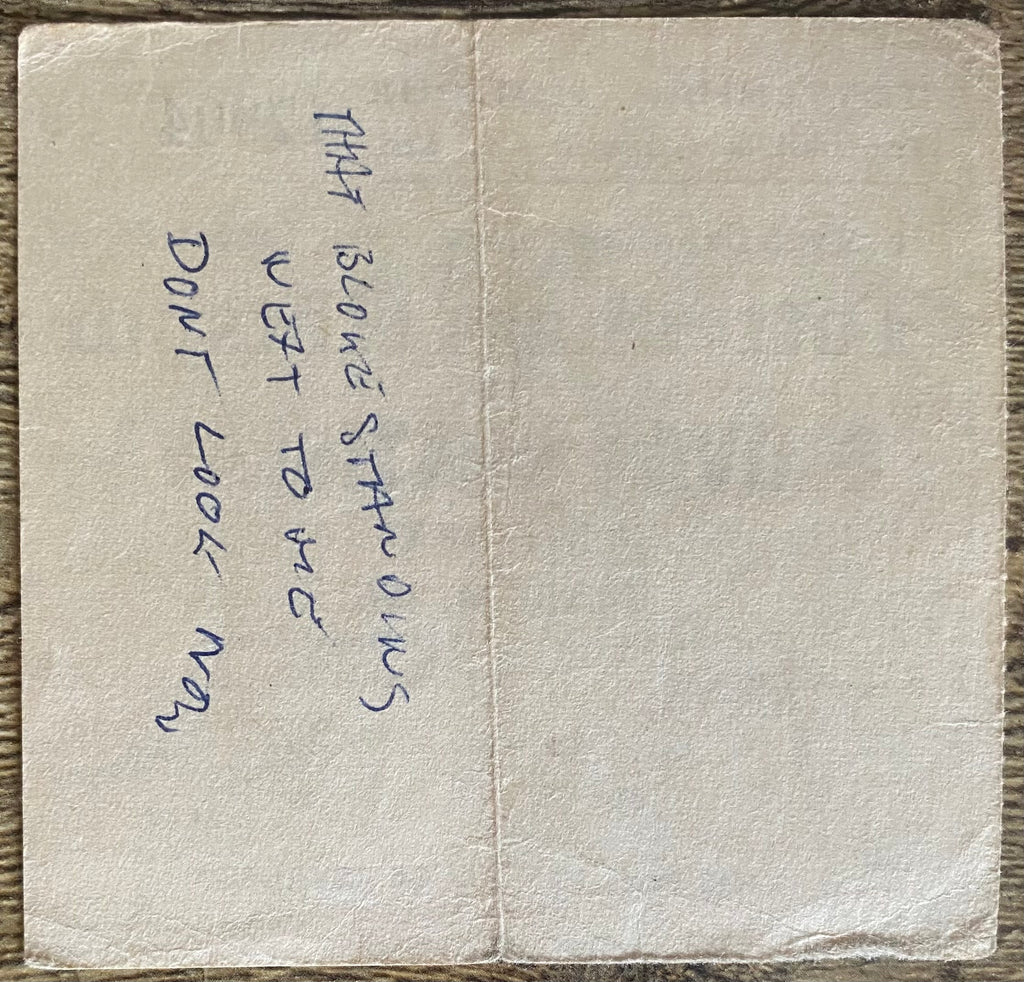 THAT BLONE STANDING
NEXT TO ME
DONT LOOK NOW